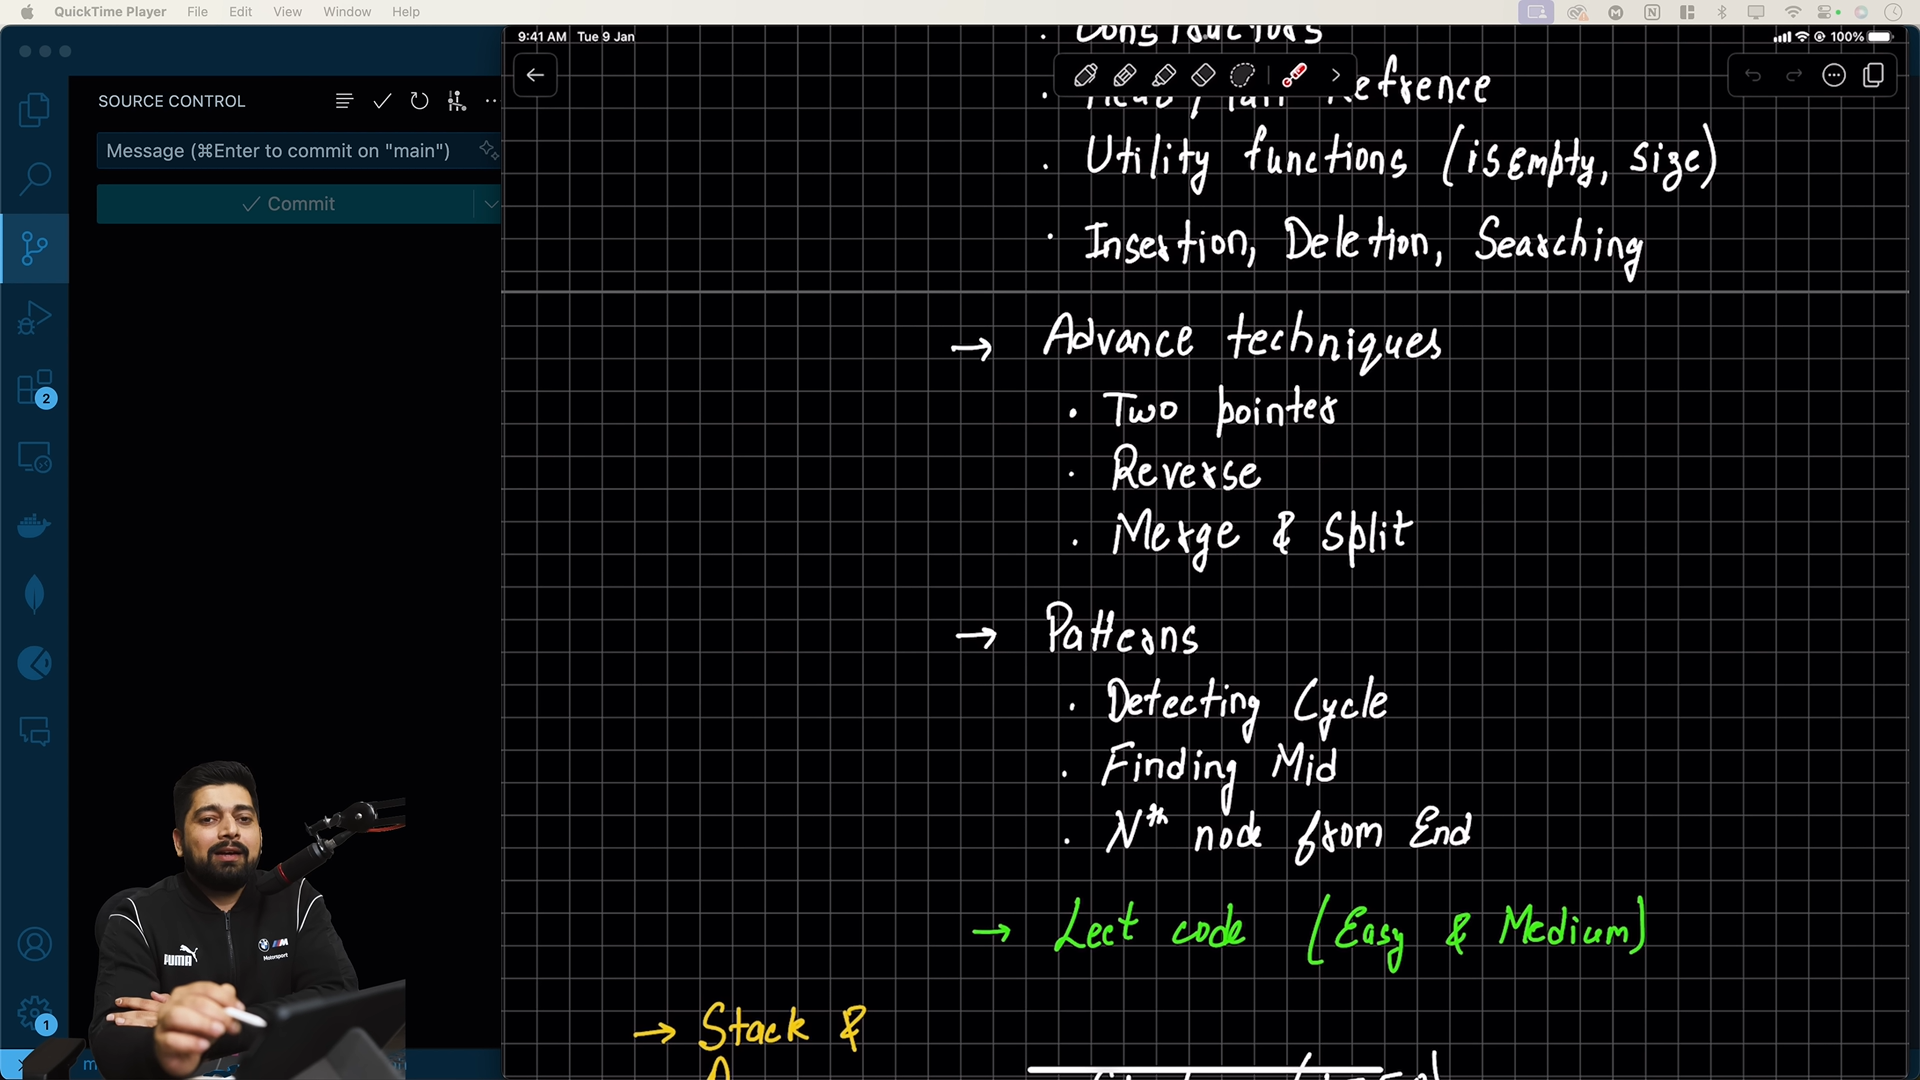 QuickTime Player File Edit View Window Help
9:41 AM Tue 9 Jan
100%
SOURCE CONTROL
Message (⌘Enter to commit on "main")
Commit
2
1
Constructors
Head / Tail Refrence
Utility functions (isEmpty, size)
Insertion, Deletion, Searching
→ Advance techniques
· Two pointer
· Reverse
· Merge & Split
→ Patterns
· Detecting Cycle
· Finding Mid
· Nth node from End
→ Leet code (Easy & Medium)
→ Stack &
PUMA
M Motorsport